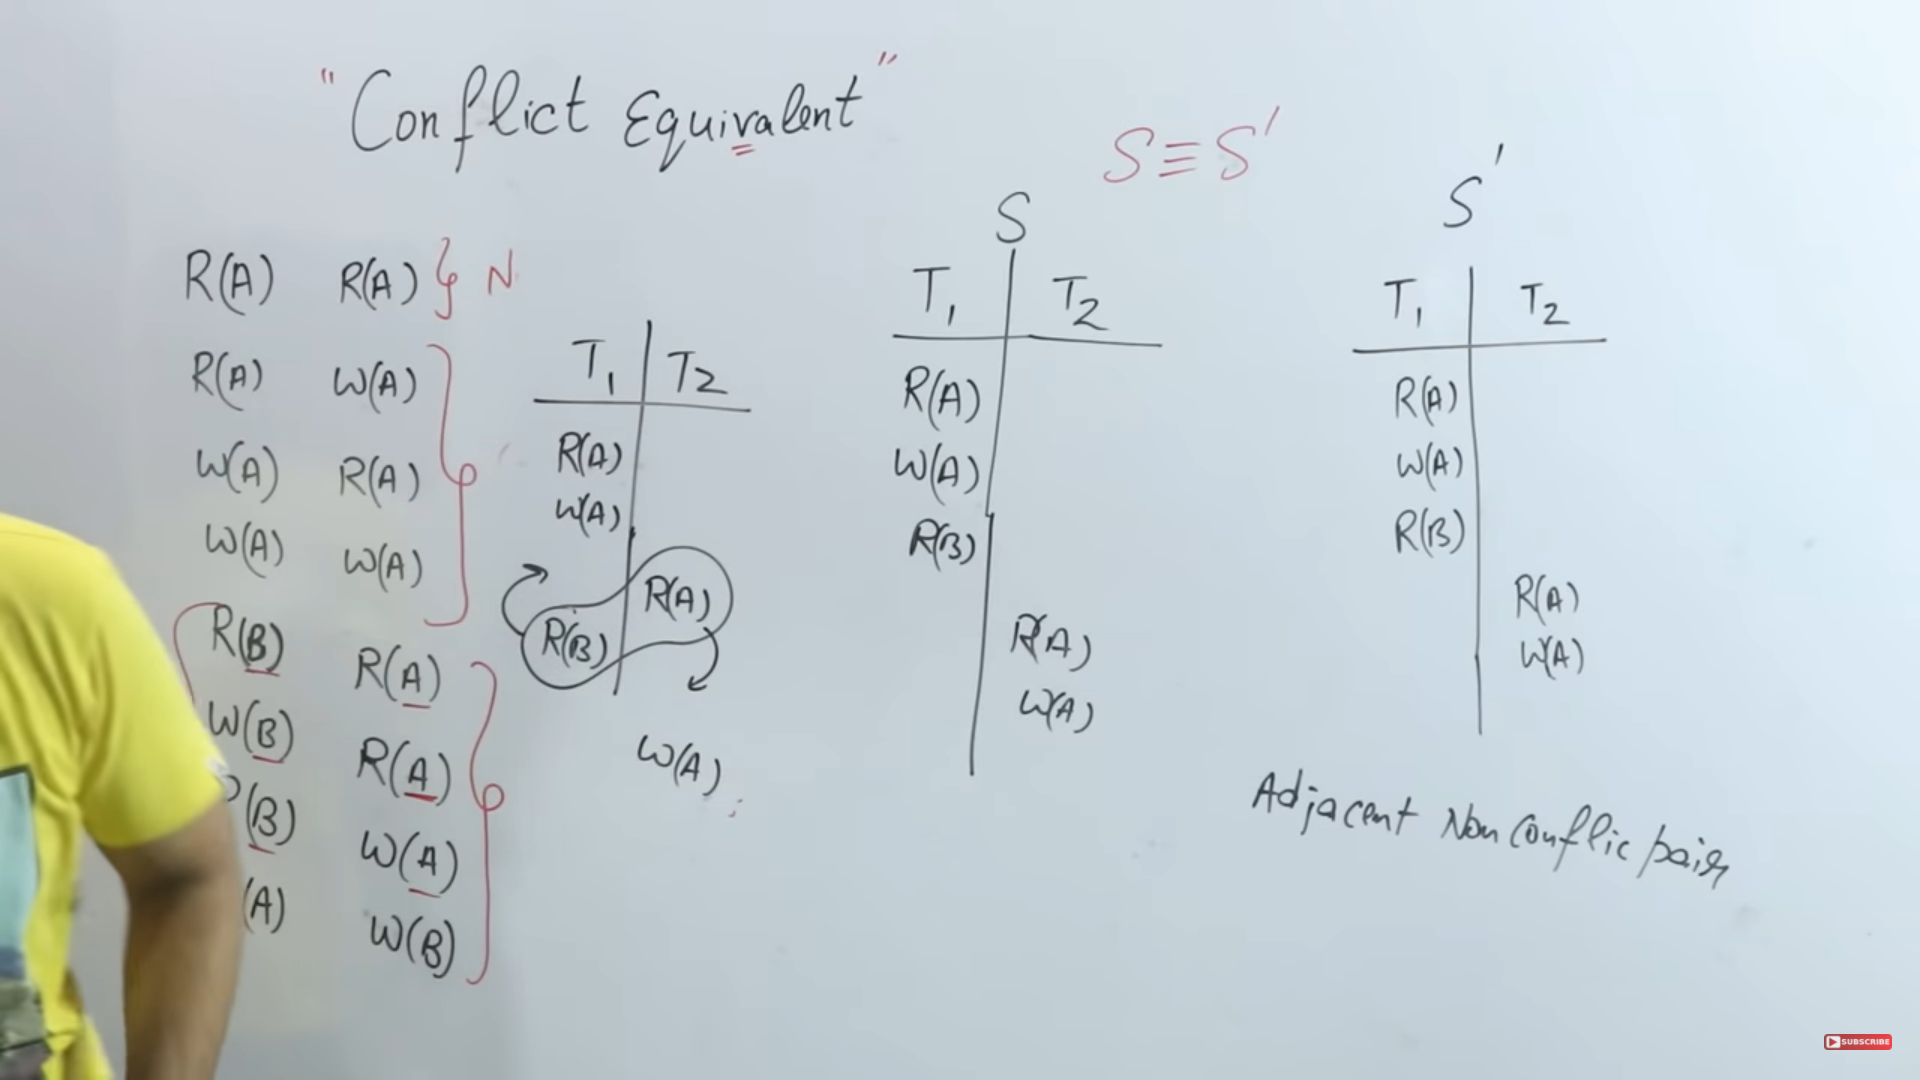 "Conflict Equivalent"
S≡S'
R(A) R(A) } N
R(A) W(A)
W(A) R(A)
W(A) W(A)
R(B) R(A)
W(B) R(A)
(B) W(A)
(A) W(B)
T1 T2
R(A)
W(A)
R(A)
R(B)
W(A)
S
T1 T2
R(A)
W(A)
R(B)
R(A)
W(A)
S'
T1 T2
R(A)
W(A)
R(B)
R(A)
W(A)
Adjacent Non Conflic pair
SUBSCRIBE